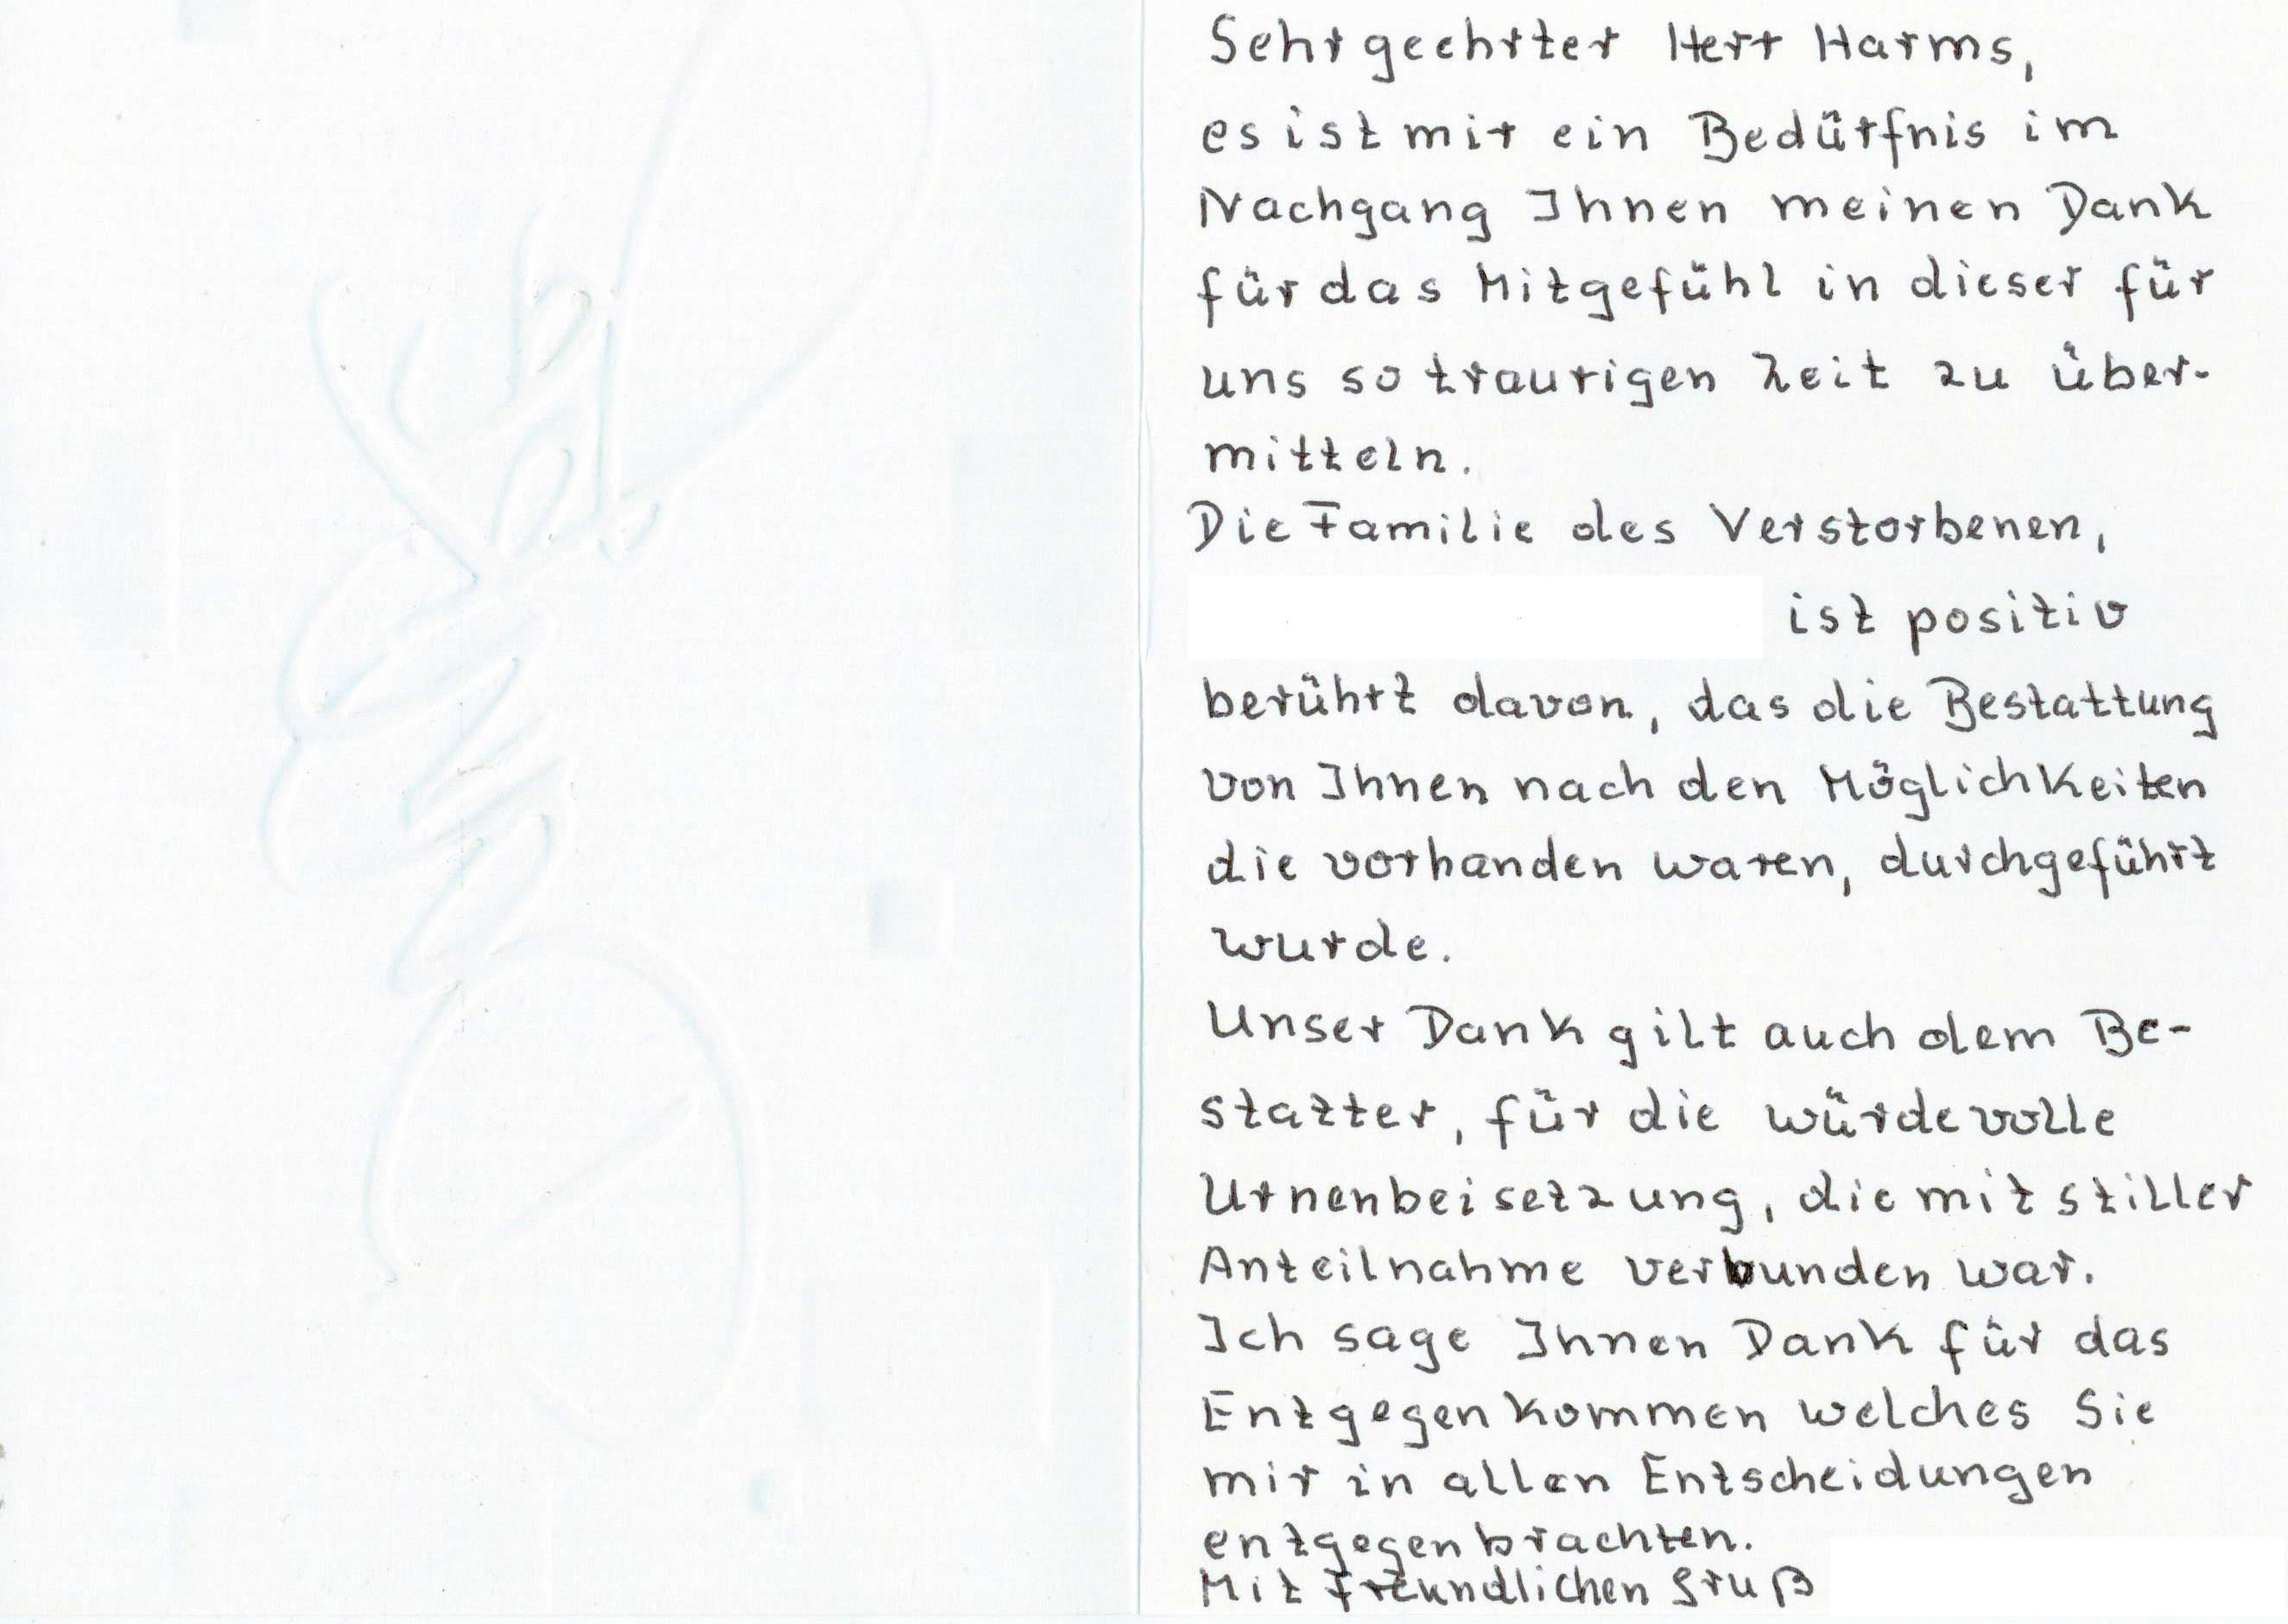 Sehr geehrter Herr Harms,
es ist mir ein Bedürfnis im
Nachgang Ihnen meinen Dank
für das Mitgefühl in dieser für
uns so traurigen Zeit zu über-
mitteln.
Die Familie des Verstorbenen,
ist positiv
berührt davon, das die Bestattung
von Ihnen nach den Möglichkeiten
die vorhanden waren, durchgeführt
wurde.
Unser Dank gilt auch dem Be-
statter, für die würdevolle
Urnenbeisetzung, die mit stiller
Anteilnahme verbunden war.
Ich sage Ihnen Dank für das
Entgegenkommen welches Sie
mir in allen Entscheidungen
entgegenbrachten.
Mit freundlichen Gruß